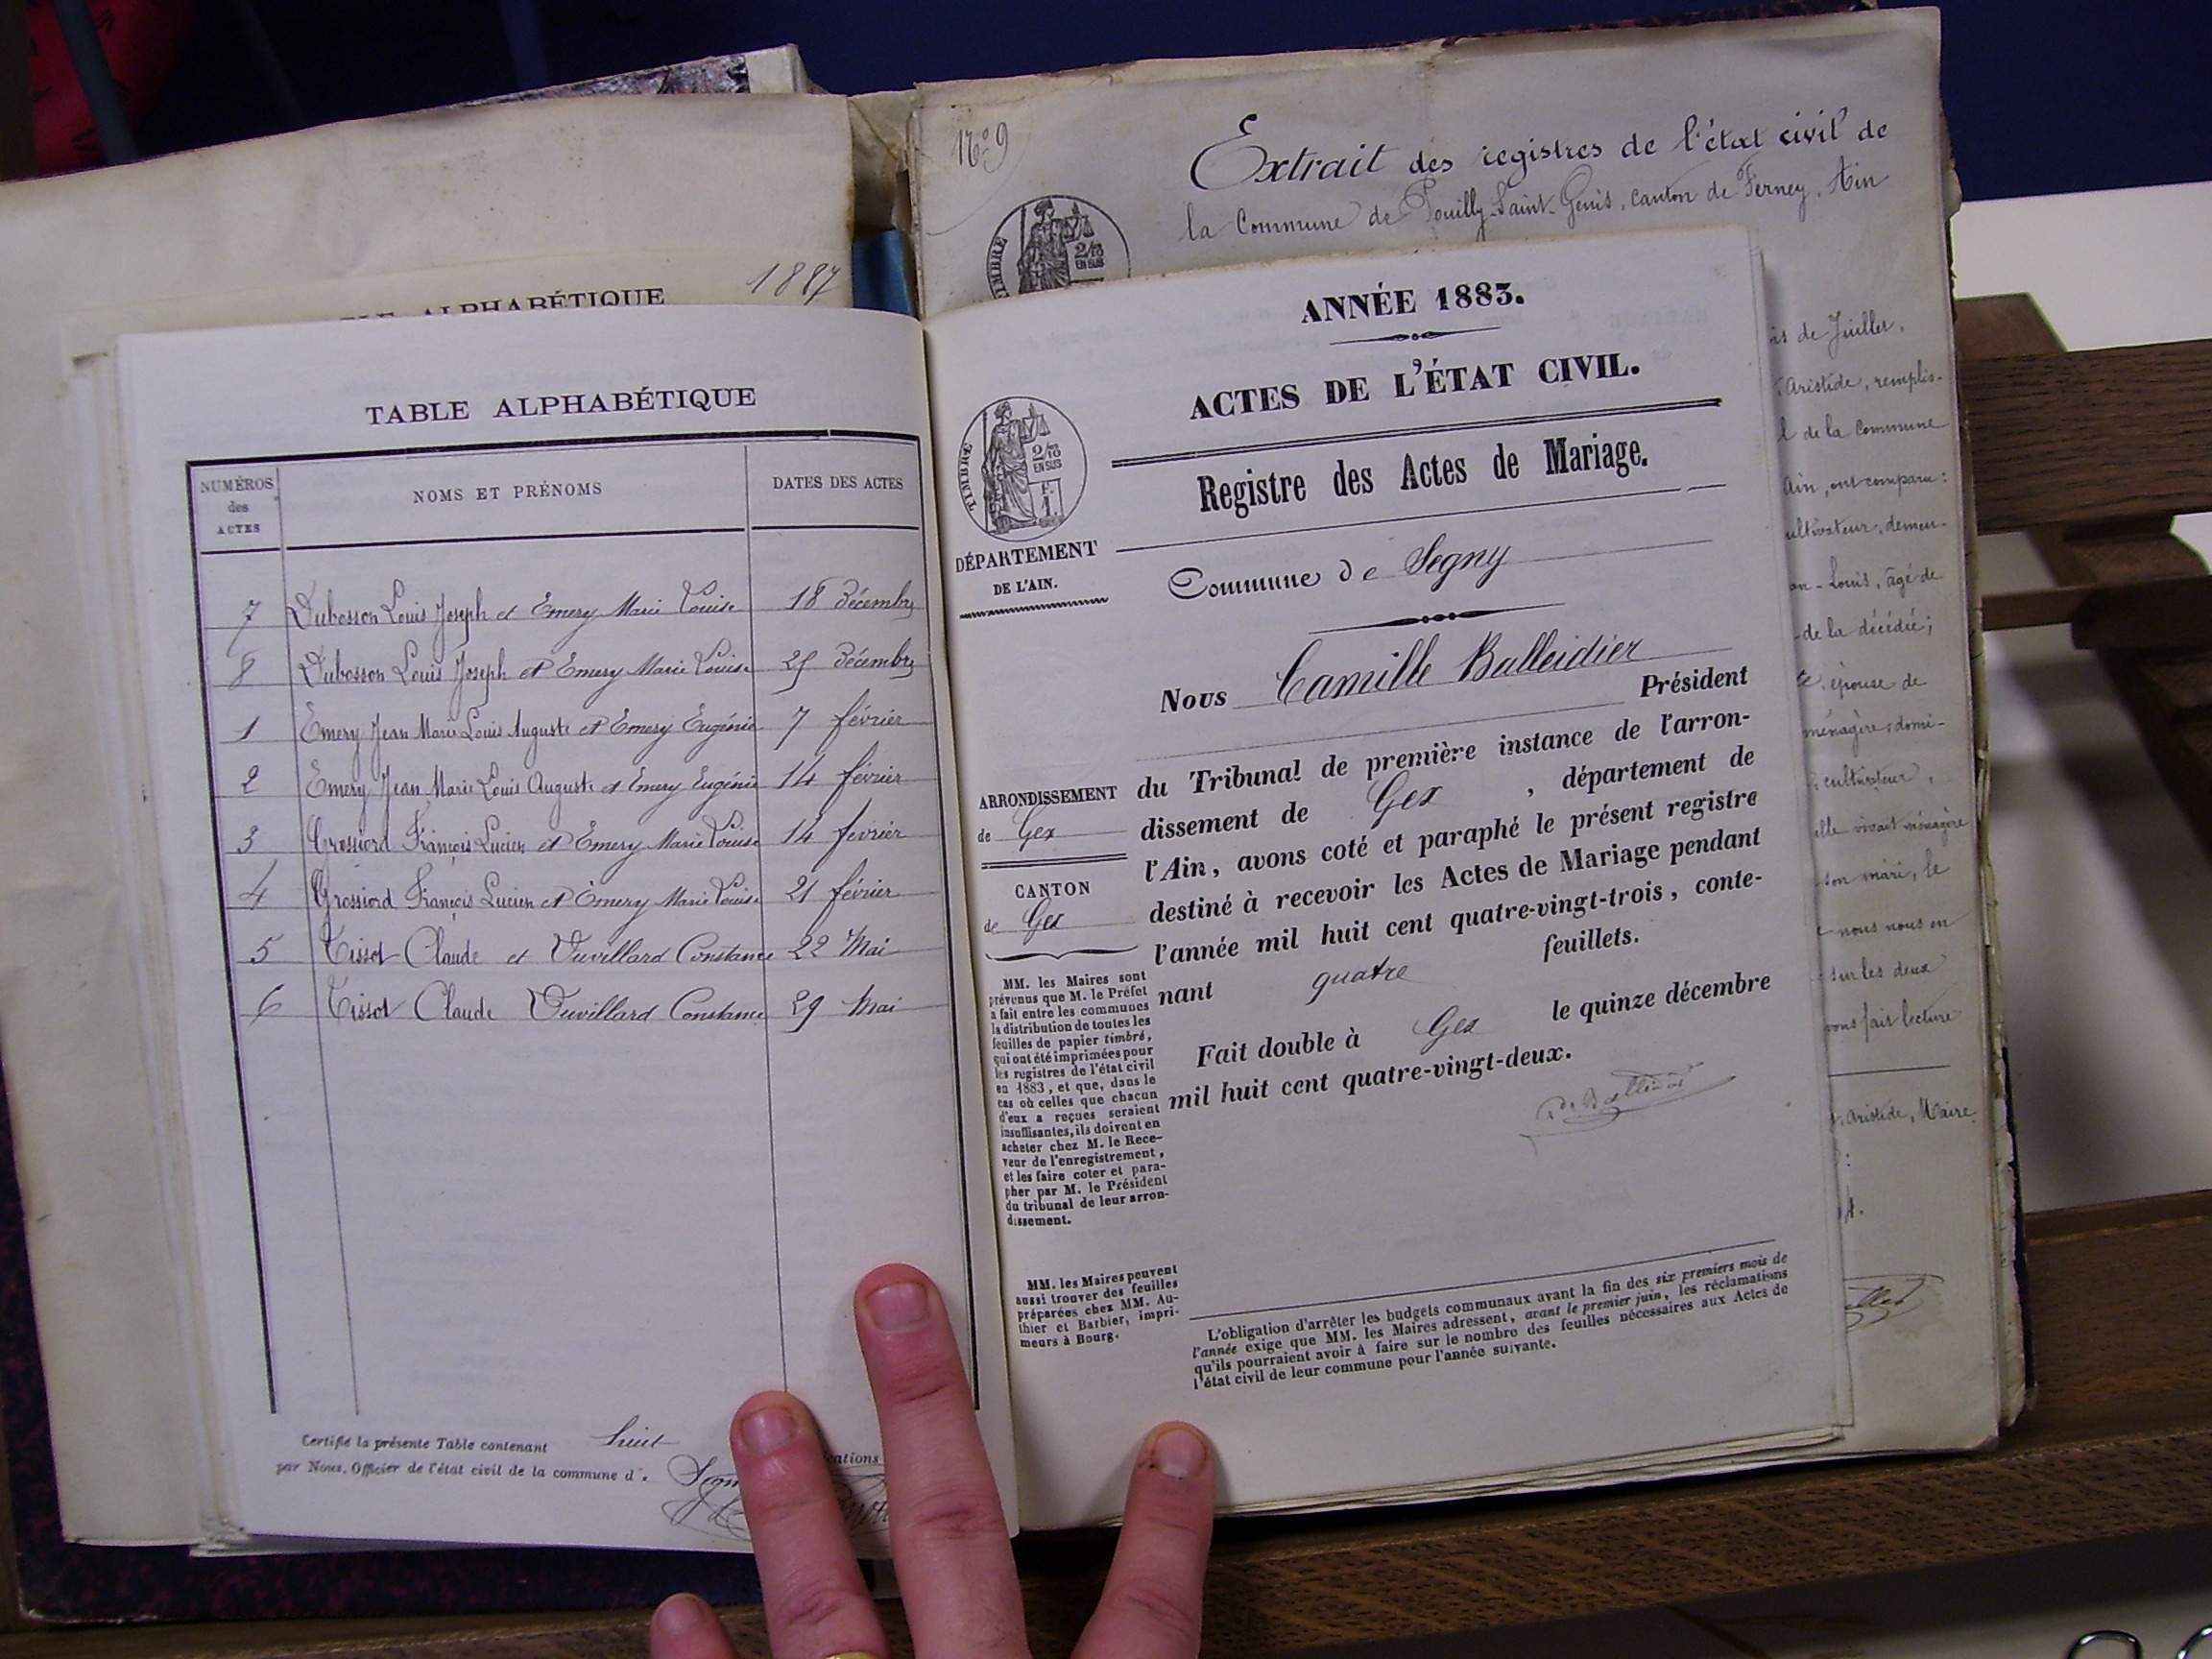 1887
TABLE ALPHABÉTIQUE
NUMÉROS des ACTES
NOMS ET PRÉNOMS
DATES DES ACTES
7 Dubosson Louis Joseph et Emery Marie Louise 18 Décembre
8 Dubosson Louis Joseph et Emery Marie Louise 25 Décembre
1 Emery Jean Marie Louis Auguste et Emery Eugénie 7 février
2 Emery Jean Marie Louis Auguste et Emery Eugénie 14 février
3 Grossiord François Lucien et Emery Marie Louise 14 fevrier
4 Grossiord François Lucien et Emery Marie Louise 21 février
5 Tissot Claude et Vuvillard Constance 22 Mai
6 Tissot Claude Vuvillard Constance 29 Mai
Certifié la présente Table contenant huit
par Nous, Officier de l'état civil de la commune d
N° 9
Extrait des registres de l'état civil de
la Commune de Pouilly-Saint-Genis, canton de Ferney, Ain
ANNÉE 1883.
ACTES DE L'ÉTAT CIVIL.
Registre des Actes de Mariage.
TIMBRE
2/10
EN SUS
F.
1.
DÉPARTEMENT
DE L'AIN.
Commune de Segny
Nous Camille Balleidier
Président
du Tribunal de première instance de l'arron-
dissement de Gex, département de
l'Ain, avons coté et paraphé le présent registre
destiné à recevoir les Actes de Mariage pendant
l'année mil huit cent quatre-vingt-trois, conte-
nant quatre feuillets.
Fait double à Gex le quinze décembre
mil huit cent quatre-vingt-deux.
ARRONDISSEMENT
de Gex
CANTON
de Gex
MM. les Maires sont
prévenus que M. le Préfet
a fait entre les communes
la distribution de toutes les
feuilles de papier timbré,
qui ont été imprimées pour
les registres de l'état civil
en 1883, et que, dans le
cas où celles que chacun
d'eux a reçues seraient
insuffisantes, ils doivent en
acheter chez M. le Rece-
veur de l'enregistrement,
et les faire coter et para-
pher par M. le Président
du tribunal de leur arron-
dissement.
MM. les Maires peuvent
aussi trouver des feuilles
préparées chez MM. Au-
thier et Barbier, impri-
meurs à Bourg.
L'obligation d'arrêter les budgets communaux avant la fin des six premiers mois de
l'année exige que MM. les Maires adressent, avant le premier juin, les réclamations
qu'ils pourraient avoir à faire sur le nombre des feuilles nécessaires aux Actes de
l'état civil de leur commune pour l'année suivante.
de Juillet,
Aristide, remplis-
de la Commune
Ain, ont comparu:
Louis, âgé de
de la décédée;
épouse de
son mari, le
nous nous en
sur les deux
fait lecture
Aristide, Maire